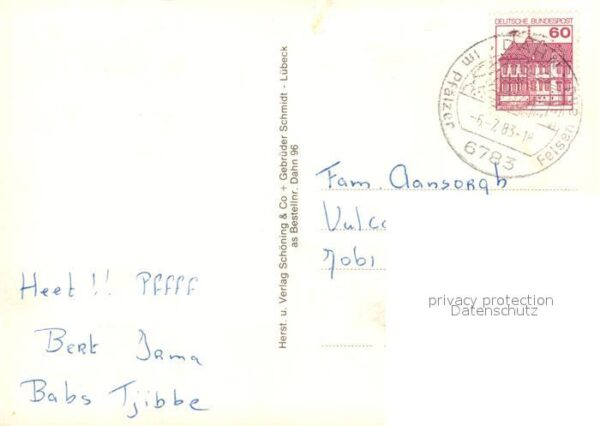 DEUTSCHE BUNDESPOST
60
DAHN
im Pfälzer
Felsen
-6.-7.83-1
6783
Herst. u. Verlag Schöning & Co + Gebrüder Schmidt - Lübeck
as Bestellnr. Dahn 96
Fam. Aansorgh
Vulc
7061
privacy protection
Datenschutz
Heet!! Pffff
Bert Irma
Babs Tjibbe